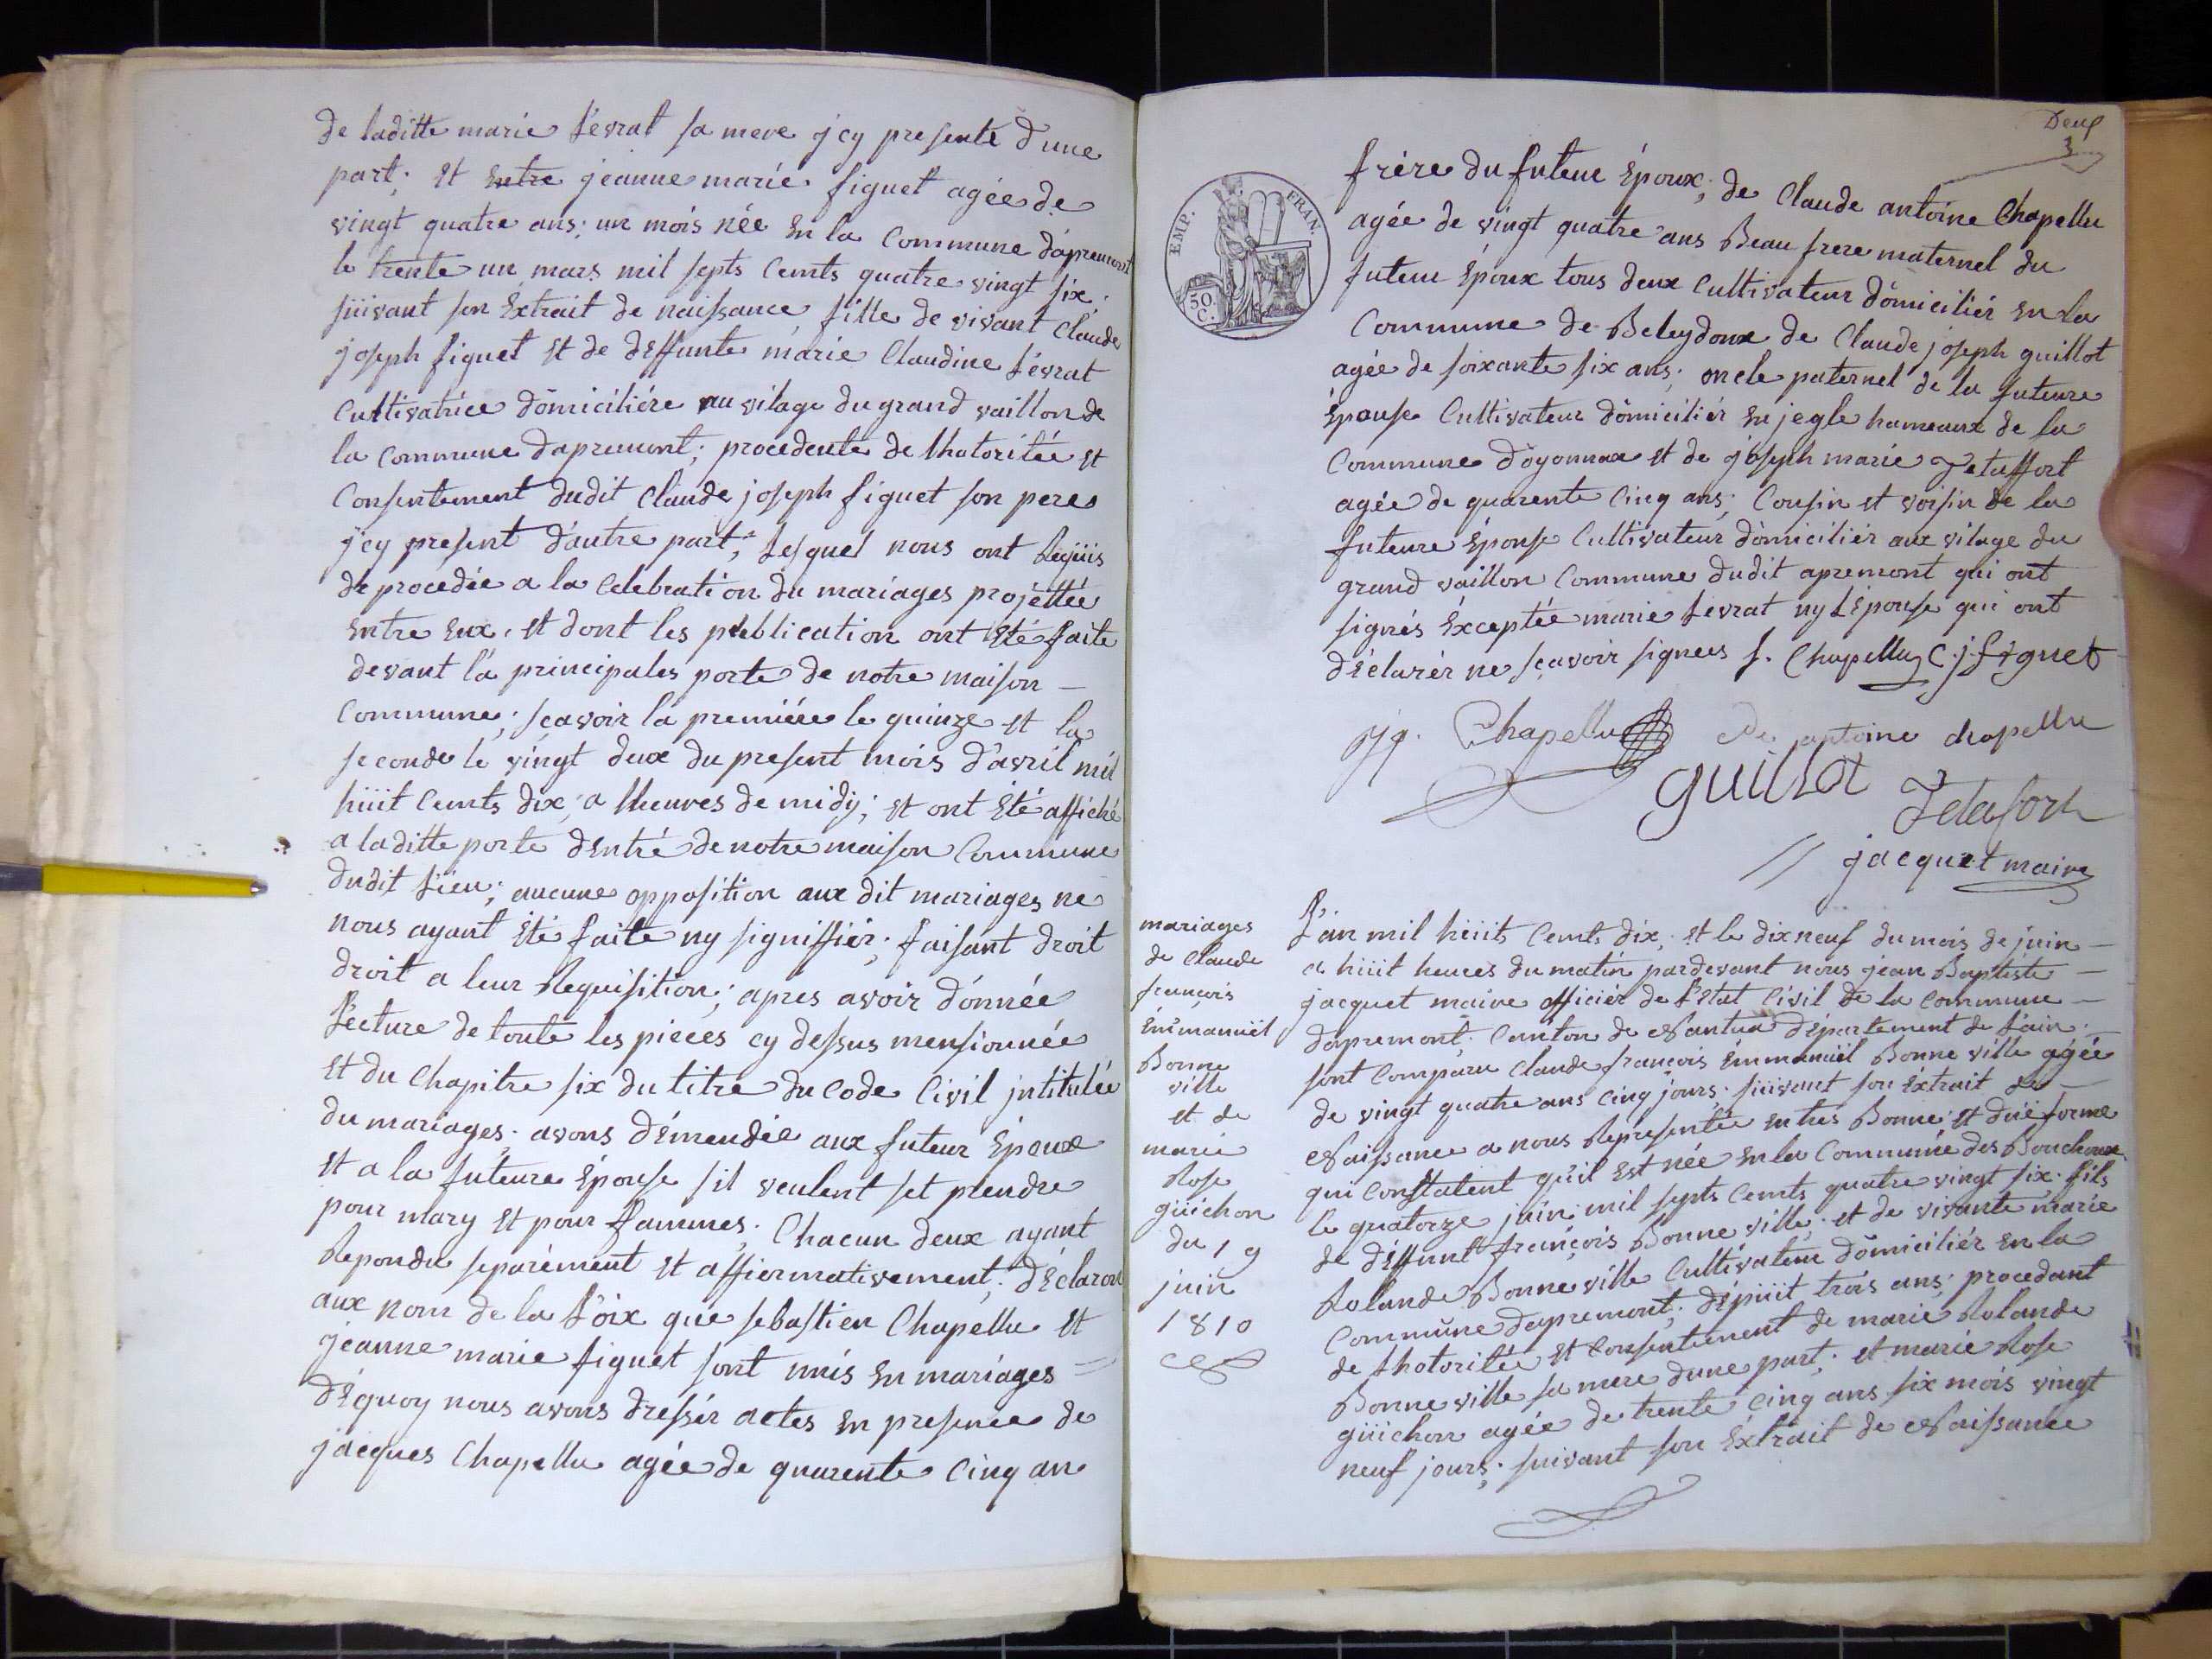 de laditte marie Levrat sa mere jcy presente d'une
part; et entre jeanne marie figuet agée de
vingt quatre ans; un mois née en la Commune dápremont
le trente un mars mil septs Cemts quatre vingt six
suivant son Éxtrait de naissance fille de vivant Claude
joseph figuet et de deffunte marie Claudine Lévrat
Cultivatrice dômiciliére au vilage du grand vaillon de
la Commune dapremont; procedente de lhotoritée et
Consentement dudit Claude joseph figuet son pere
jcy present d'autre part; Lesquel nous ont Requis
de procedée a la Celebration du mariages projettée
entre eux, et dont les publication ont été faite
devant lá principales porte de notre maison —
Commune; sçavoir la premiére le quinze et la
seconde le vingt deux du present mois d'avril mil
huit Cemts dix; a lheures de midy; et ont été affiché
a laditte porte dentré de notre maison Commune
dudit Lieu; aucune opposition aux dit mariages ne
nous ayant été faite ny signiffiér; faisant droit
droit a leur Requisition; apres avoir dónnée
Lecture de toute les pieces cy dessus mensionnée
et du Chapitre six du titre du Code Civil jntitulée
du mariages; avons démendée aux futeur Époux
et a la futeure épouse sil veulent set prendre
pour mary et pour fammes; Chacun deux ayant
Repondu separément et affiermativement; déclaron
aux nom de la Loix que sebastien Chapellu et
jeanne marie figuet sont unis en mariages =
déquoy nous avons dressér actes en presence de
jacques Chapellu agée de quarente Cinq an
Deux
3
EMP. FRAN.
50
C.
frère du futeur Époux; de Claude antoine Chapellu
agée de vingt quatre ans Beau frere maternel du
futeur époux tous deux Cultivateur dômiciliér en la
Commune de Beleydoux de Claude joseph guillot
agée de soixante six ans; oncle paternel de la futeure
épouse Cultivateur dômiciliér en jegle hameaux de la
Commune dóyonnax et de joseph marie
agée de quarente Cinq ans; Cousin et voisin de la
futeure épouse Cultivateur dômiciliér aux vilage du
grand vaillon Commune dudit apremont qui ont
signés éxceptée marie Levrat ny Lépouse qui ont
déclarér ne sçavoir signees s. Chapellu C. j. figuet
Chapellu antoine chapellu
guillot
jacquet maire
mariages
de Claude
françois
émmanuël
Bonne
ville
et de
marie
Rose
guichon
du 19
juin
1810
Lan mil huit Cemts dix; et le dix neuf du mois de juin —
a huit heures du matin pardevant nous jean Baptiste —
jacquet maire officiér de Létat Civil de la Commune —
dapremont; Canton de Nantua département de Lain
sont Comparu Claude françois Émmanuël Bonne ville agée
de vingt quatre ans Cinq jours; suivant son éxtrait de —
Naissance a nous Representée en tres Bonne et duë forme
qui Constatent qu'il est née en la Commune des Bouchoux
le quatorze juin mil septs Cemts quatre vingt six; fils
de déffunt françois Bonne ville; et de vivante marie
Rolande Bonne ville Cultivateur dômiciliér en la
Commune dapremont; dépuit trois ans; procedant
de Lhotoritée et Consentement de marie Rolande
Bonne ville sa mere dune part; et marie Rose
guichon agée de trente Cinq ans six mois vingt
neuf jours; suivant son éxtrait de Naissance